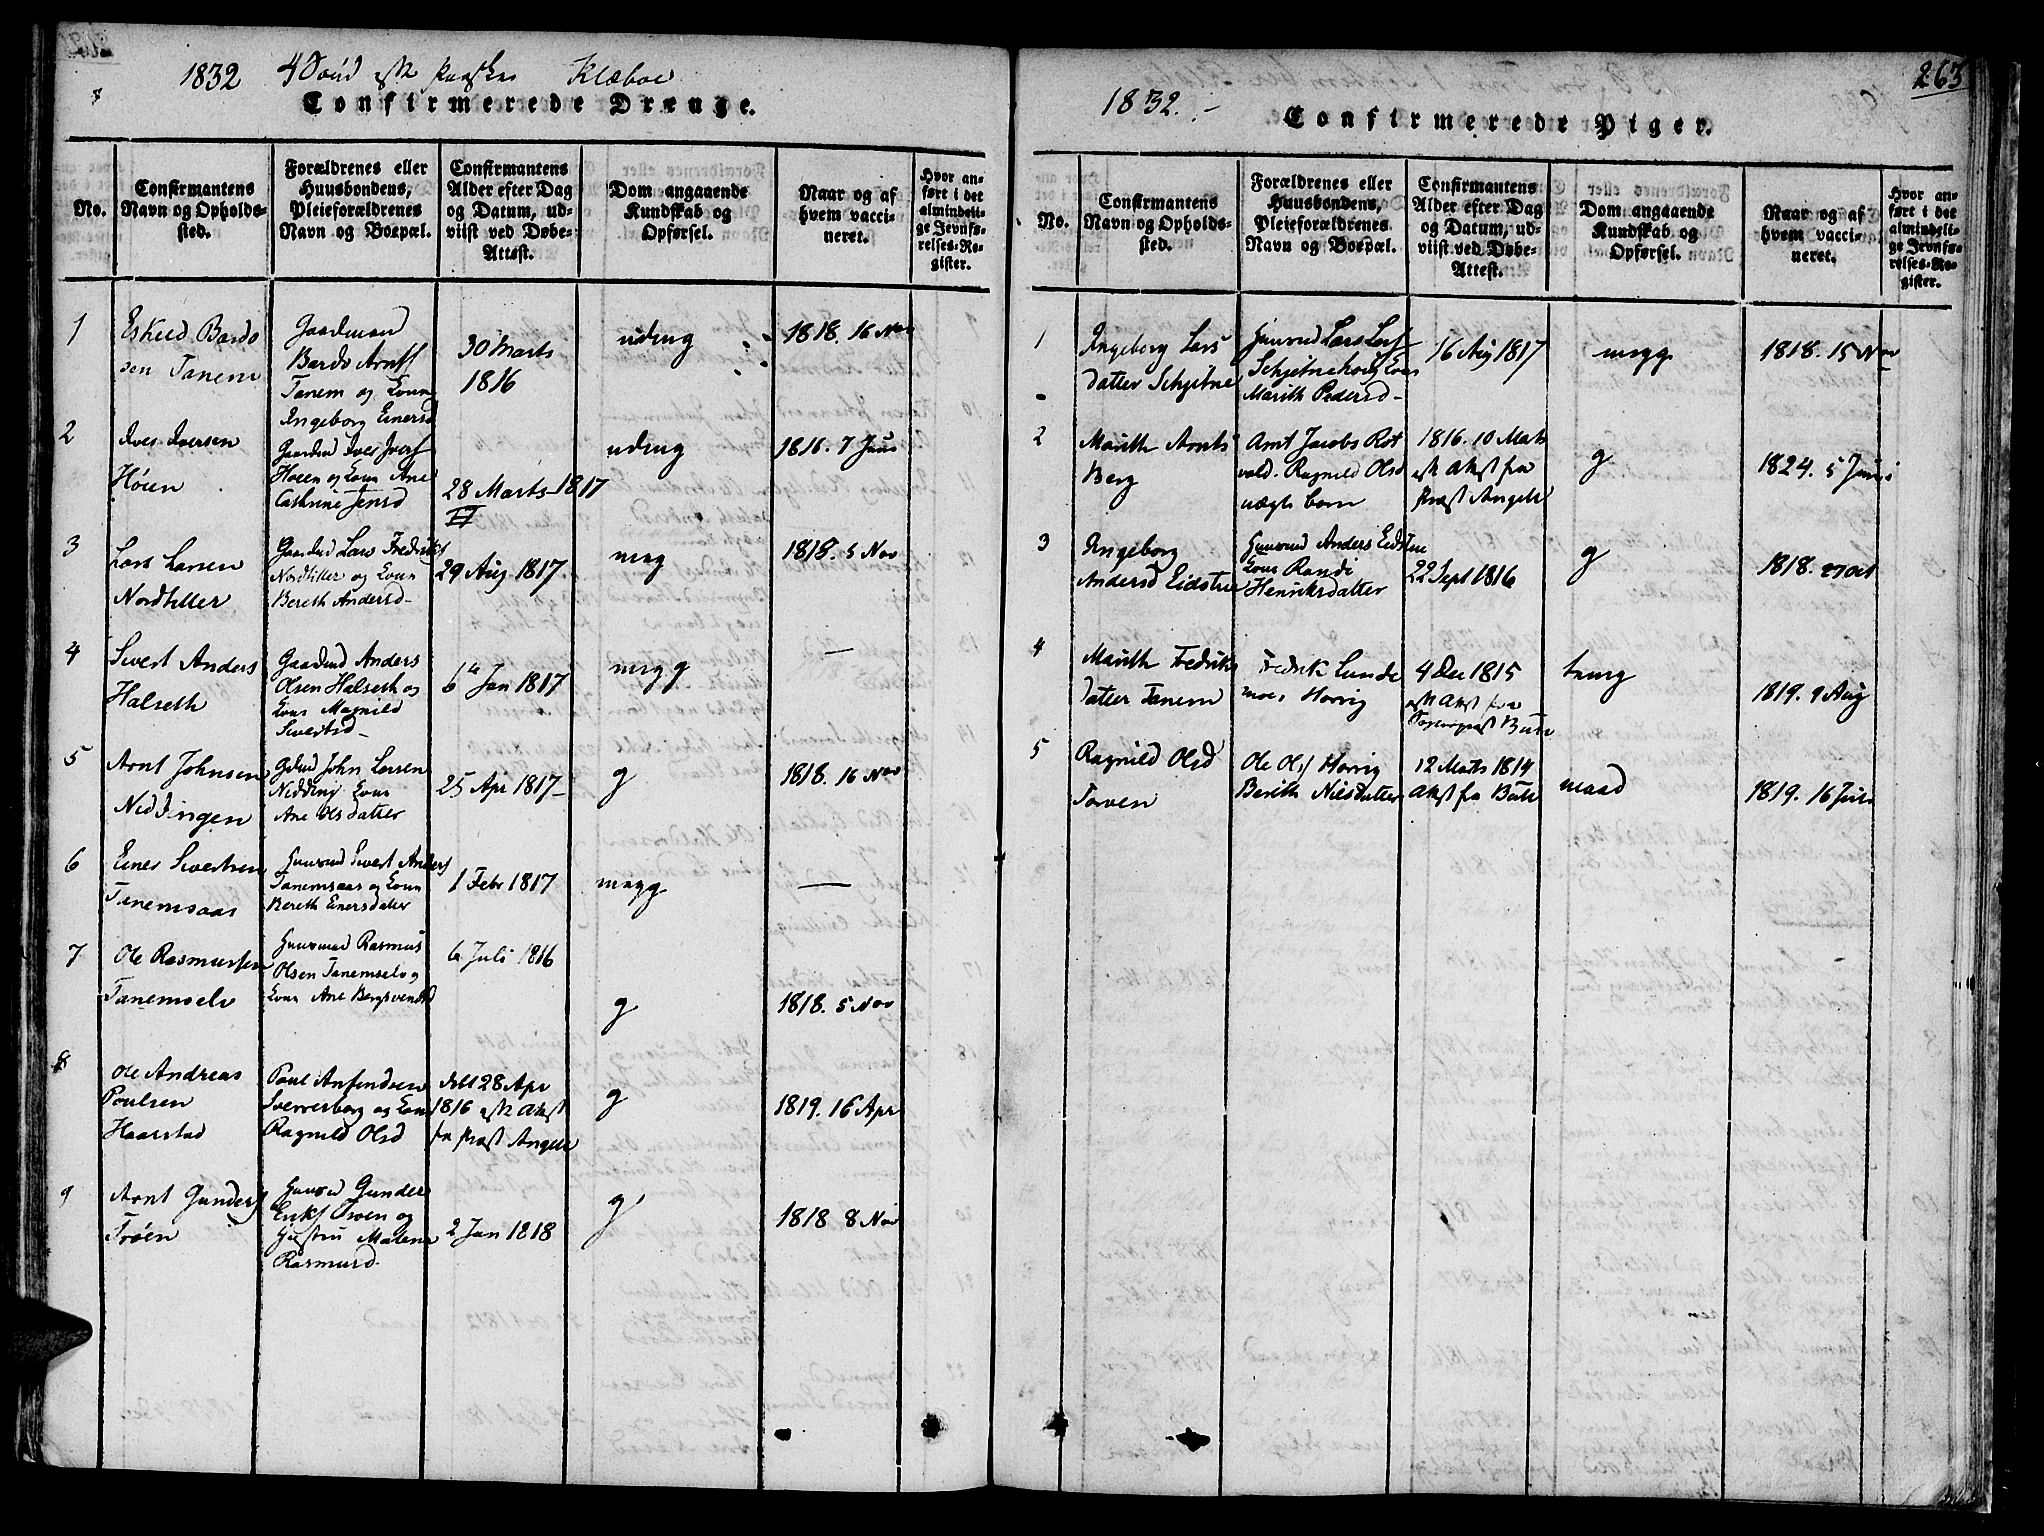 1832 4 Sønd eft Paaske Klæboe
Confirmerede Drenge.
No.
Confirmantens Navn og Opholdssted.
Forældrenes eller Huusbondens, Pleieforældrenes Navn og Boepæl.
Confirmantens Alder efter Dag og Datum, udviist ved Døbe-Attest.
Dom angaaende Kundskab og Opførsel.
Naar og af hvem vaccineret.
Hvor anført i det almindelige Jevnførelses-Register.
1
Eskild Bardo
sen Tanem
Gaardmand
Bardo Arnts
Tanem og Kone
Ingeborg Einersd
30 Marts
1816
udmg
1818. 16 Nov
2
Iver Iversen
Høien
Gaardmd Iver Ivers
Høien og Kone Ane
Cathrine Jensd
28 Marts 1817
udmg
1816. 7 Juni
3
Lars Larsen
Nordtiller
Gaardmd Lars Fredriks
Nordtiller og Kone
Bereth Andersd
29 Aug 1817
meg
1818. 5 Nov
4
Sivert Anders
Halseth
Gaardmd Anders
Olsen Halseth og
Kone Magnild
Sivertsd
6 Jan 1817
megg
—
5
Arnt Johnsen
Niddingen
Gdmd John Larsen
Nidding Kone
Ane Olsdatter
25 Apr 1817
g
1818. 16 Nov
6
Einer Sivertsen
Tanemsaas
Huusmd Sivert Anders
Tanemsaas og Kone
Bereth Einersdatter
1 Febr 1817
megg
—
7
Ole Rasmussen
Tanemselv
Huusmd Rasmus
Olsen Tanemselv og
Kone Ane Bergsvendsd
6 Juli 1816
g
1818. 5 Nov
8
Ole Andreas
Poulsen
Haarstad
Poul Anfindsen
Sverresborg og Kone
Ragnild Olsd
døbt 28 Apr
1816 eft Attst
fra Præst Angell
g
1819. 16 Apr
9
Arnt Gunders
Trøen
Huusmd Gunder
Eriks Trøen og
Hustru Malena
Rasmusd
2 Jan 1818
g
1818 8 Nov
1832.
263
Confirmerede Piger.
No.
Confirmantens Navn og Opholdssted.
Forældrenes eller Huusbondens, Pleieforældrenes Navn og Boepæl.
Confirmantens Alder efter Dag og Datum, udviist ved Døbe-Attest.
Dom angaaende Kundskab og Opførsel.
Naar og af hvem vaccineret.
Hvor anført i det almindelige Jevnførelses-Register.
1
Ingeborg Lars
datter Schjetne
Huusmd Lars Lars
Schjetnehoug Kone
Marith Pedersd
16 Aug 1817
megg
1818. 15 Nov
2
Marith Arnts
Berg
Arnt Jacobs Rot
vold. Ragnild Olsd
uægte barn
1816. 10 Mats
eft Attst fra
Præst Angell
g
1824. 5 Juni
3
Ingeborg
Andersd Eidstue
Huusmd Anders Eidstue
Kone Randi
Henriksdatter
22 Sept 1816
g
1818. 27 Oct
4
Marith Fredriks
datter Tanem
Fredrik Lunde
moe, Horrig
4 Dec 1815
eft Attst fra
Sognepræst Bull
temg
1819. 9 Aug
5
Ragnild Olsd
Torven
Ole Ols Horrig
Berith Nilsdatter
12 Mats 1814
Attst fra Bull
maad
1819. 16 Juli